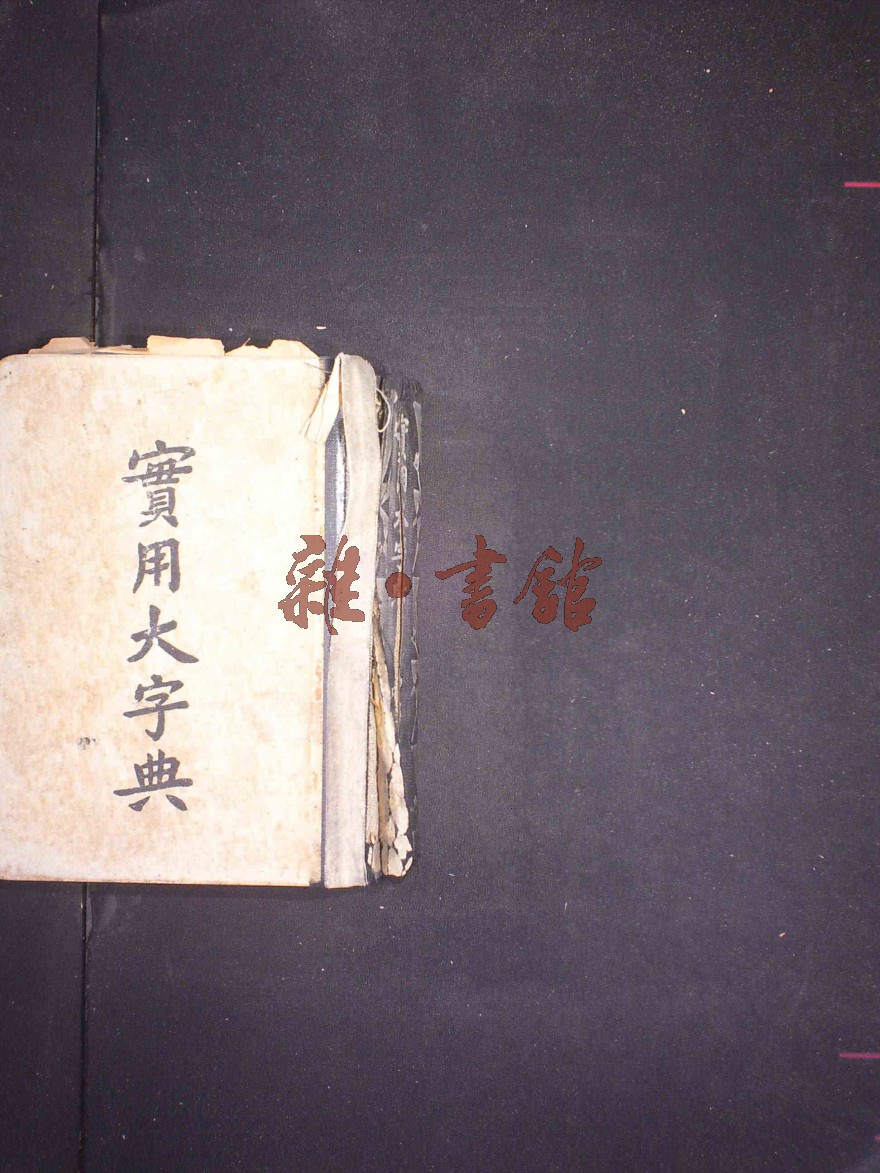 實用大字典
雜·書館